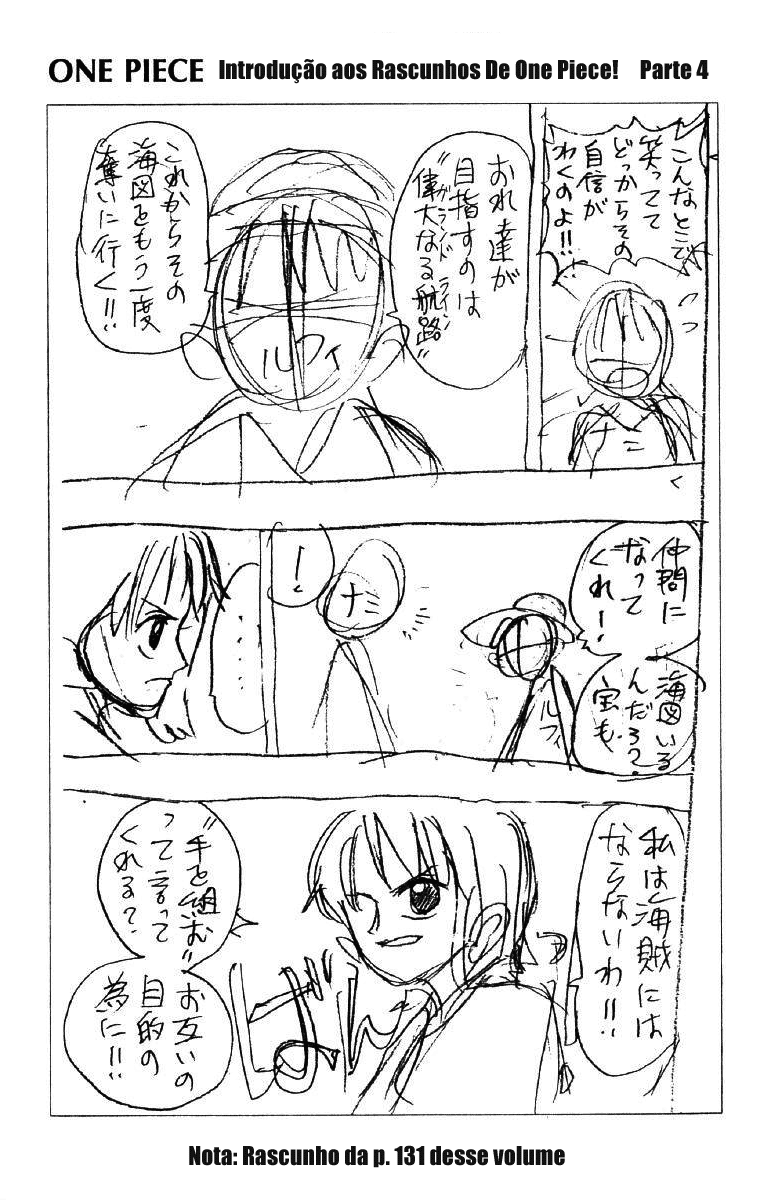 ONE PIECE Introdução aos Rascunhos De One Piece! Parte 4
こんなとこで
笑ってて
どっからその
自信が
わくのよ!!
ナミ
おれ達が
目指すのは
"偉大なる航路"
グランドライン
これからその
海図をもう一度
奪いに行く!!
ルフィ
仲間に
なって
くれ!
海図いる
んだろ?
宝も
ルフィ
ナミ
!
・・・・
私は海賊には
ならないわ!!
"手を組む"
って言って
くれる?
お互いの
目的の
為に!!
ばん
Nota: Rascunho da p. 131 desse volume